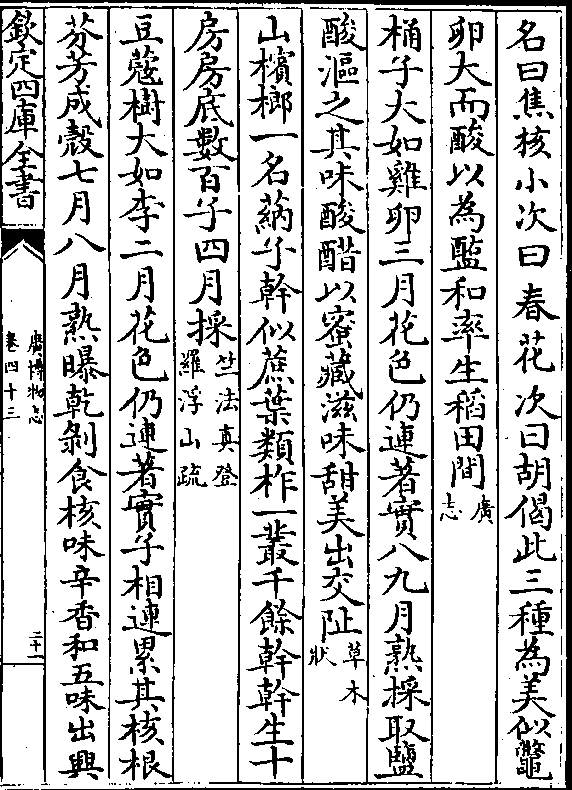 名曰焦核小次曰春花次曰胡偈此三種為美似鼈
卵大而酸以為醢和率生稻田間廣志
桶子大如雞卵三月花色仍連著實八九月熟採取鹽
酸漚之其味酸醋以蜜藏滋味甜美出交阯草木狀
山檳榔一名蒳子幹似蔗葉類柞一叢千餘幹幹生十
房房底數百子四月採竺法真登羅浮山疏
豆蔻樹大如李二月花色仍連著實子相連累其核根
芬芳成殼七月八月熟曝乾剝食核味辛香和五味出興
欽定四庫全書
廣博物志
卷四十三
二十一